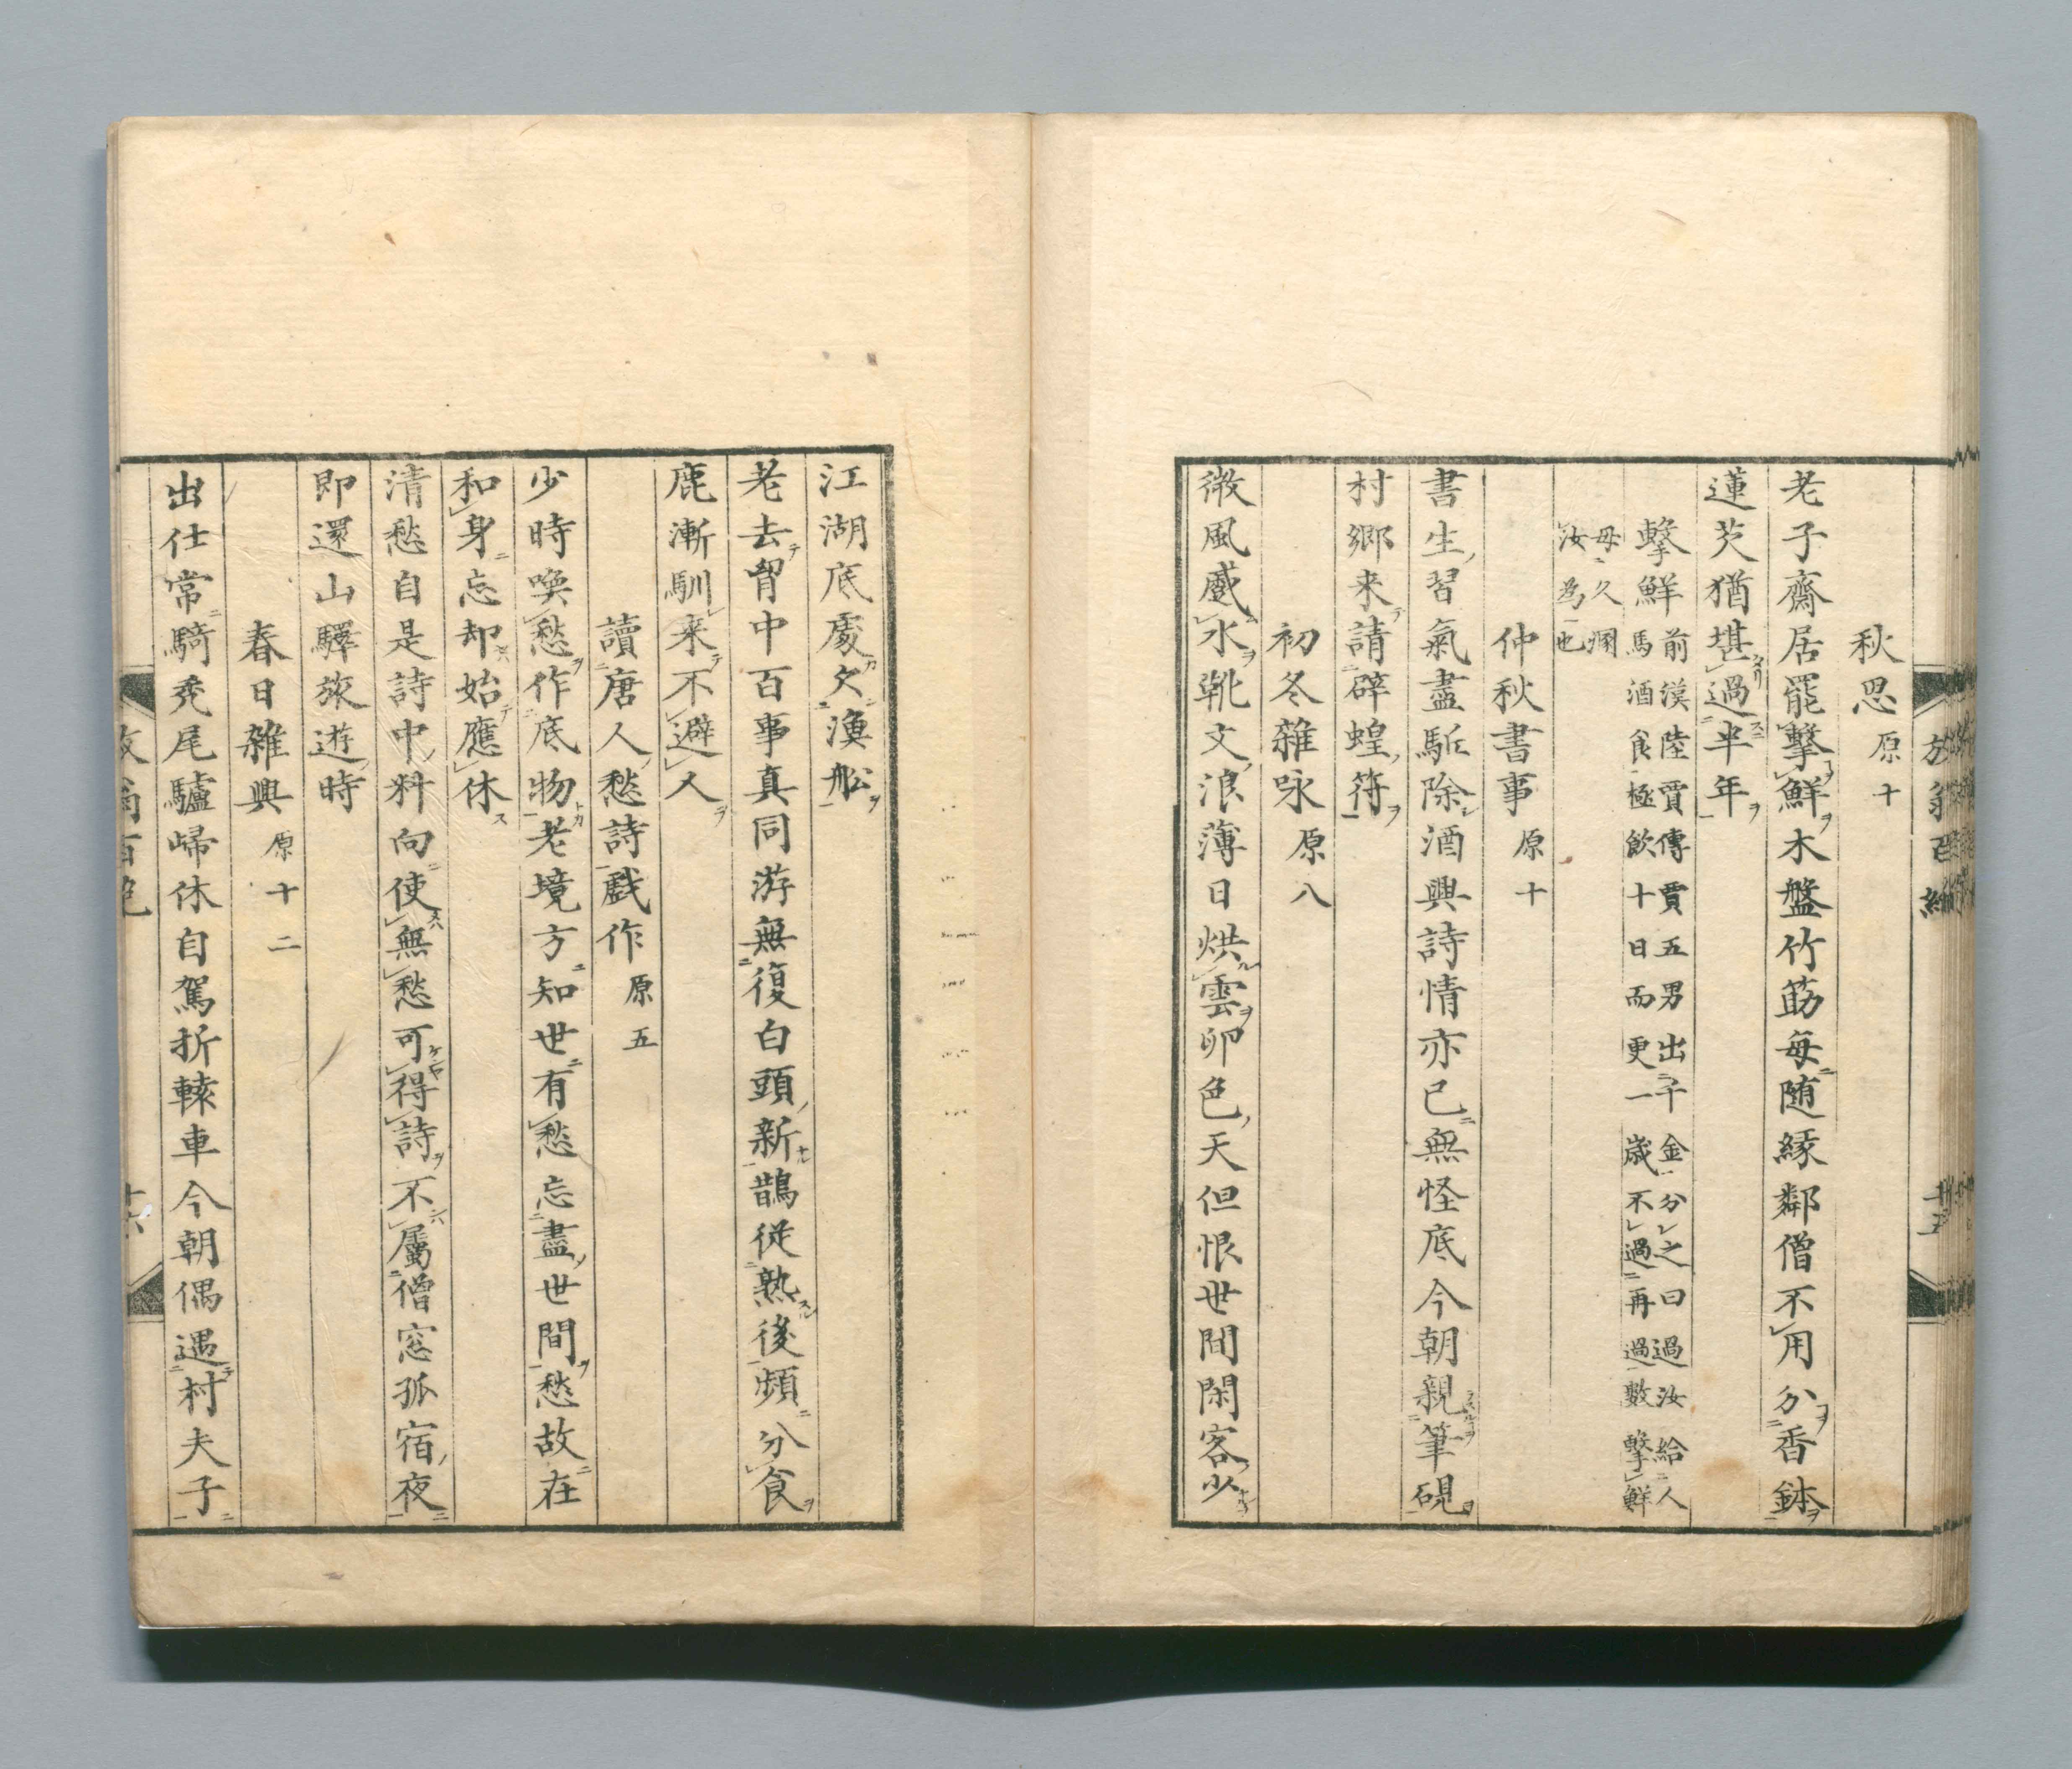 秋思 原十
老子齋居罷擊鮮木盤竹筯每随縁鄰僧不用分香鉢
蓮芡猶堪過半年
擊鮮 前漢陸賈傳賈五男出千金分之曰過汝給人
馬酒食極飲十日而更一歳不過再過數擊鮮
毋久溷
汝為也
仲秋書事 原十
書生習氣盡駈除酒興詩情亦已無怪底今朝親筆硯
村郷来請辟蝗符
初冬雜咏 原八
微風蹙水靴文浪薄日烘雲卵色天但恨世間閑客少
江湖底處欠漁舩
老去胷中百事真同游無復白頭新鵲従熟後頻分食
鹿漸馴来不避人
讀唐人愁詩戯作 原五
少時喚愁作底物老境方知世有愁忘盡世間愁故在
和身忘却始應休
清愁自是詩中料向使無愁可得詩不屬僧窓孤宿夜
即還山驛旅遊時
春日雜興 原十二
出仕常騎禿尾驢歸休自駕折轅車今朝偶遇村夫子